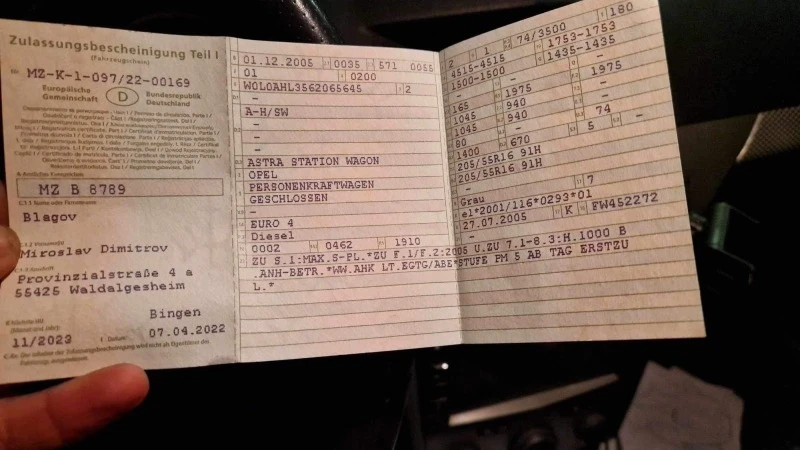 Zulassungsbescheinigung Teil I
(Fahrzeugschein)
MZ-K-1-097/22-00169
Europäische Gemeinschaft
D
Bundesrepublik Deutschland
MZ B 8789
C.1.1 Name oder Firmenname
Blagov
Miroslav Dimitrov
Provinzialstraße 4 a
55425 Waldalgesheim
Bingen
11/2023
Datum
07.04.2022
01.12.2005 0035 571 0055
01 0200
W0L0AHL3562065645 2
-
A-H/SW
-
-
ASTRA STATION WAGON
OPEL
PERSONENKRAFTWAGEN
GESCHLOSSEN
-
EURO 4
Diesel
0002 0462 1910
2 1 74/3500 180
4515-4515 1753-1753
1500-1500 1435-1435
-
165 1975 1975
1045 940
1045 940
80 - 74
1400 670 5 -
205/55R16 91H
205/55R16 91H
-
Grau 7
e1*2001/116*0293*01
27.07.2005 K FW452272
-
ZU S.1:MAX.S-PL.*ZU F.1/F.2:2005 U.ZU 7.1-8.3:H.1000 B
.ANH-BETR.*WW.AHK LT.EGTG/ABE*STUFE PM 5 AB TAG ERSTZU
L.*